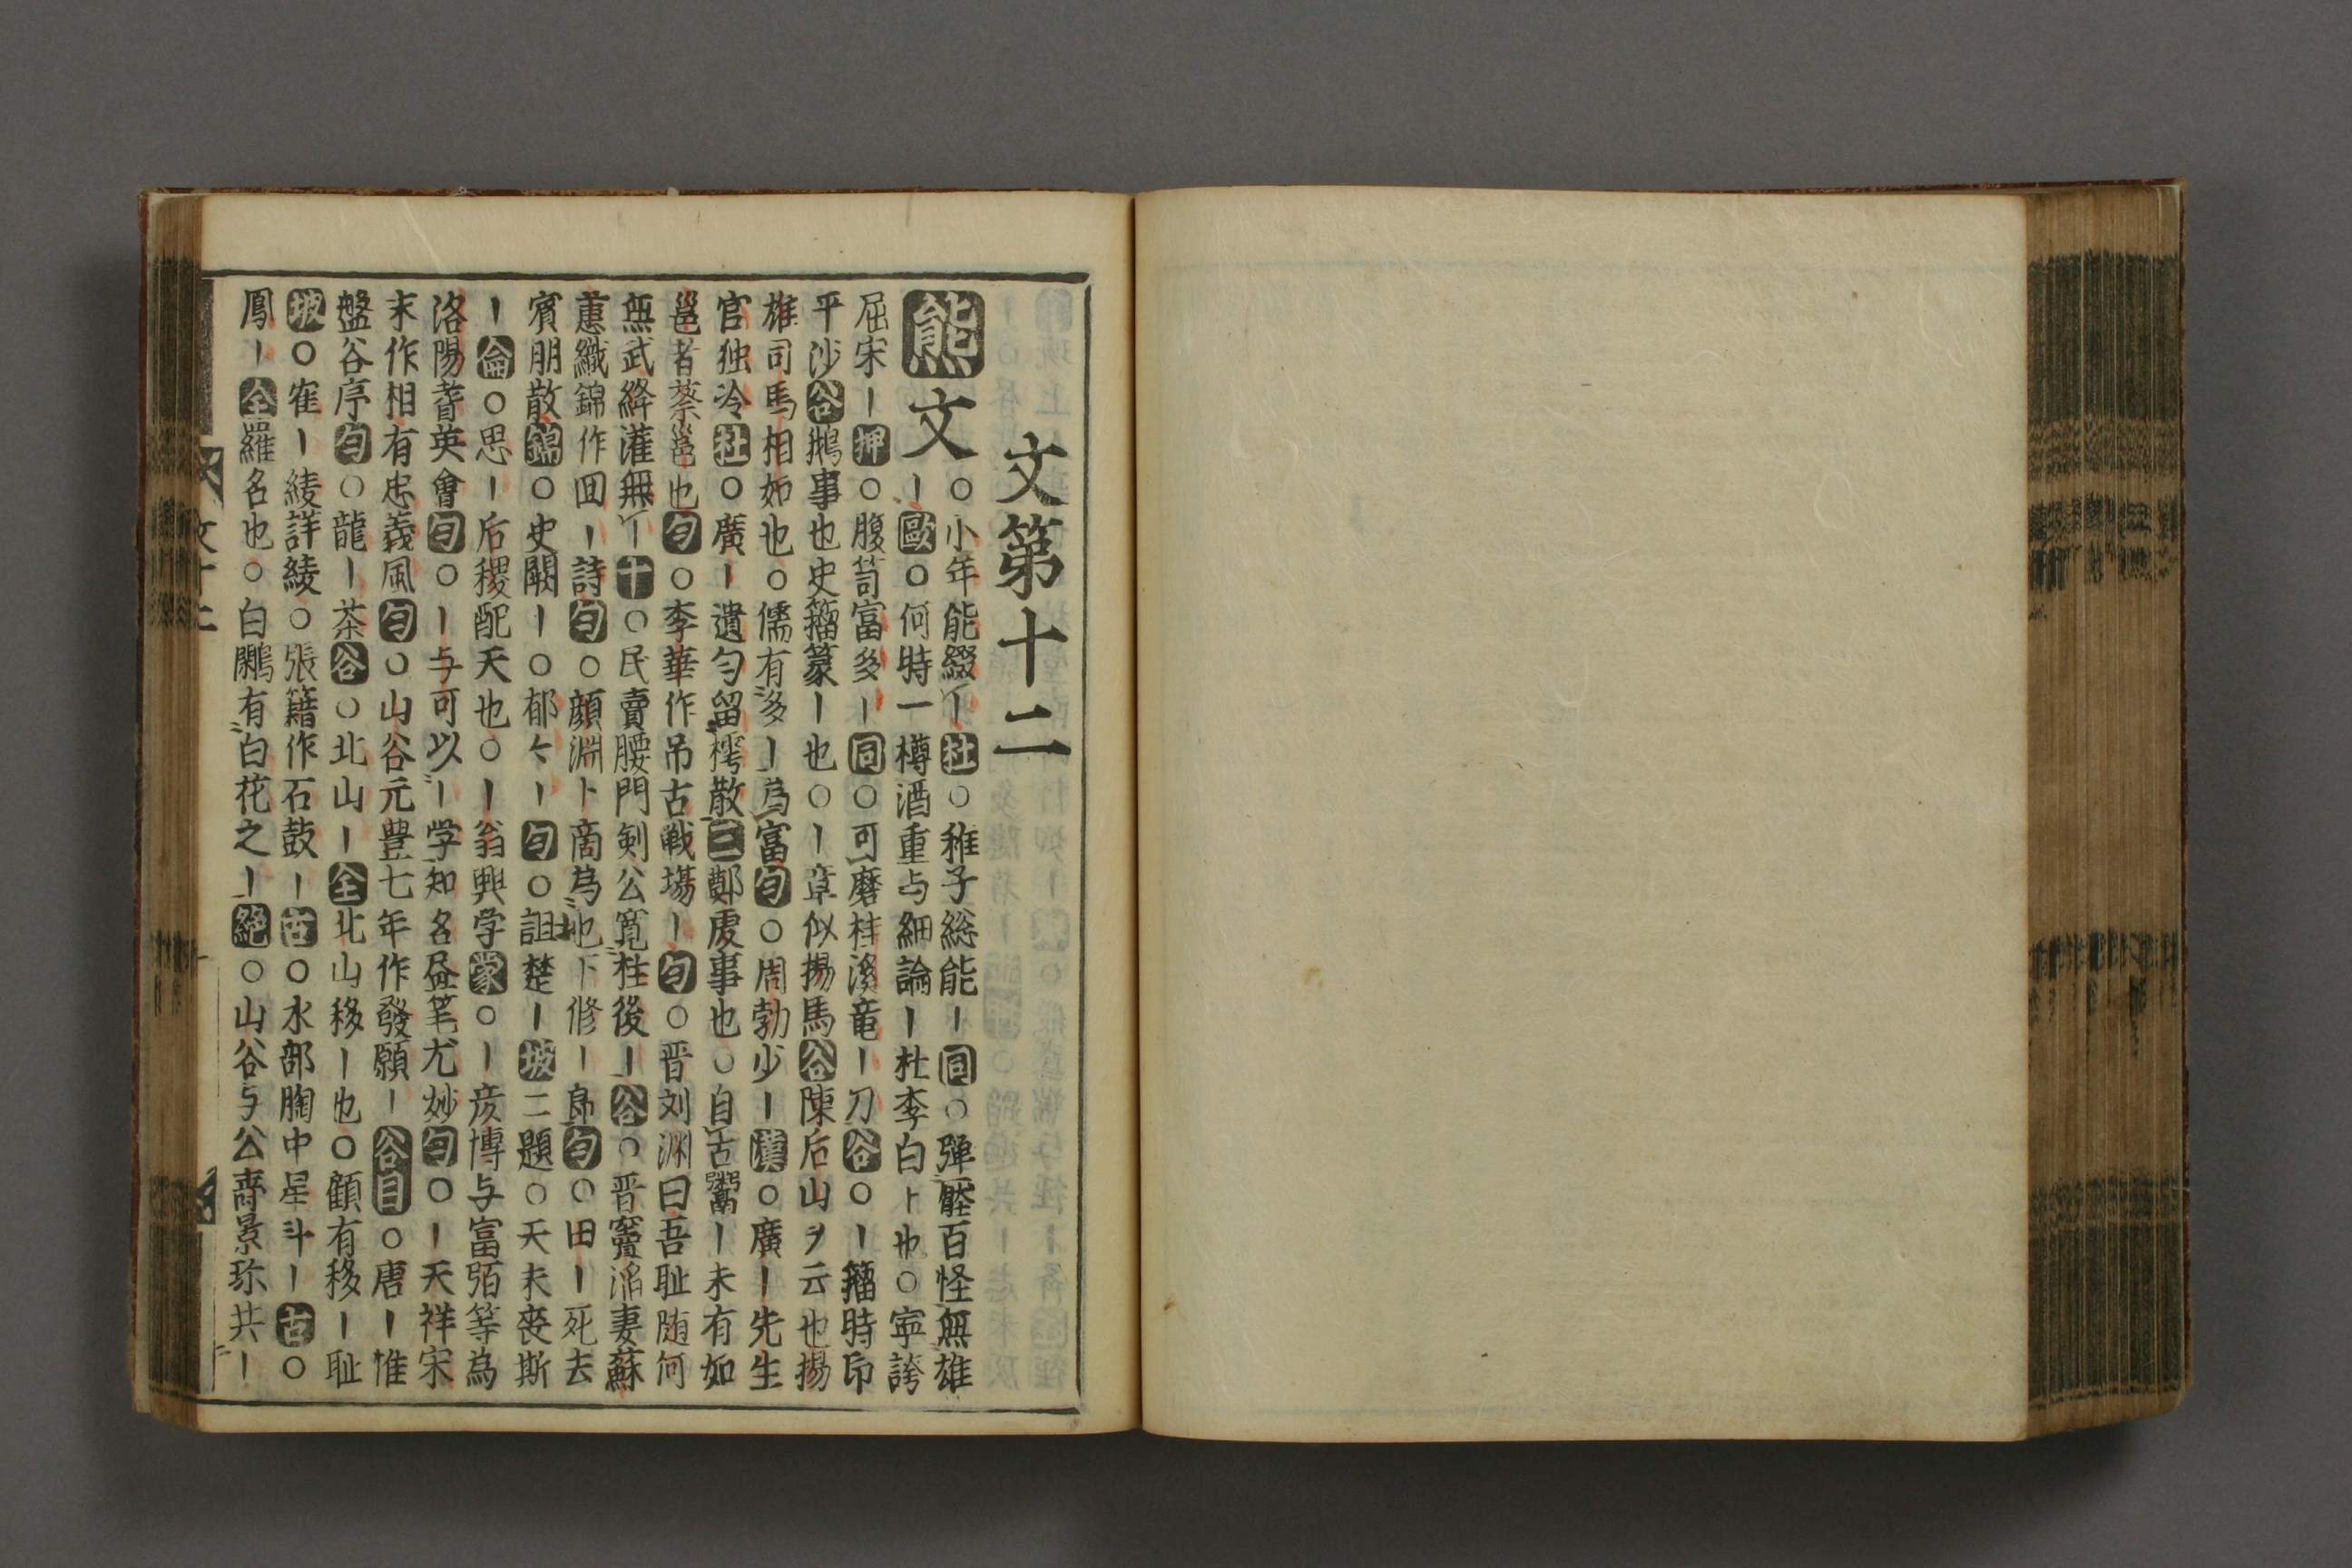 文第十二
熊文○小年能綴丨杜○稚子総能丨同○弾壓百怪無雄
丨歐○何時一樽酒重与細論丨杜李白卜也○寧誇
屈宋丨押○腹笥富多丨同○可磨桂溪竜丨刀谷○丨籀時印
平沙谷鵝事也史籀篆丨也○丨章似揚馬谷陳后山ヲ云也揚
雄司馬相如也○儒有多丨為富句○周勃少丨漢○廣丨先生
官独冷杜○廣丨遺勻留樗散三鄭虔事也○自古鬻丨未有如
邕者蔡邕也句○李華作吊古戦場丨句○晋刘渊曰吾耻随何
無武絳灌無丨十○民賣腰門剣公寛柱後丨谷○晋竇滔妻蘇
蕙織錦作回丨詩句○顔淵卜商為地下修丨郎句○田丨死去
賓朋散錦○史闕丨○郁々丨句○詛楚丨坡二題○天未丧斯
丨侖○思丨后稷配天也○丨翁興学蒙○丨彦博与富弼等為
洛陽耆英會句○丨与可以丨学知名昼筆尤妙句○丨天祥宋
末作相有忠義風句○山谷元豊七年作發願丨谷目○唐丨惟
盤谷序句○龍丨茶谷○北山丨全北山移丨也○顧有移丨耻
坡○寉丨綾詳綾○張籍作石鼓丨古○水部胸中星斗丨古○
鳳丨全羅名也○白鷴有白花之丨絶○山谷与公壽景珎共丨
文十二